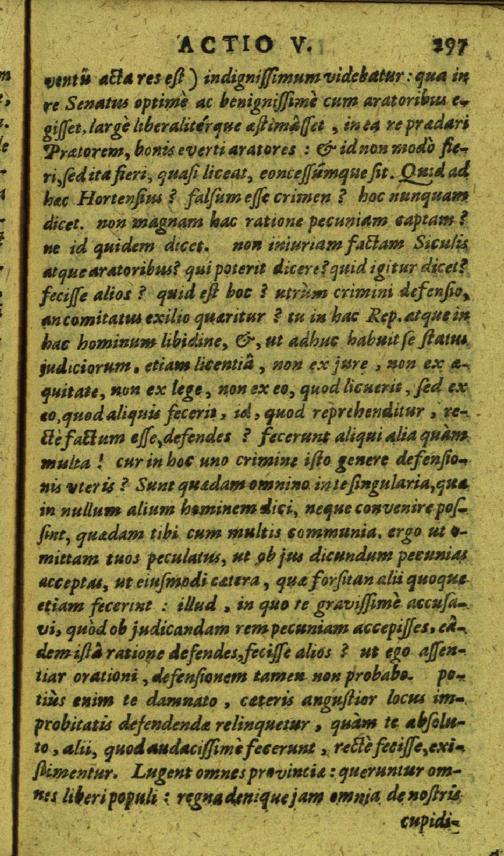 ACTIO V. 297
ventû acta res est) indignissimum videbatur: qua in
re Senatus optimè ac benignissimè cum aratoribus e-
gisset, largè liberalitérque æstimâsset, in ea re prædari
Prætorem, bonis everti aratores: & id non modò fie-
ri, sed ita fieri, quasi liceat, concessúmque sit. Quid ad
hæc Hortensius? falsum esse crimen? hoc nunquam
dicet. non magnam hac ratione pecuniam captam?
ne id quidem dicet. non iniuriam factam Siculis
atque aratoribus? qui poterit dicere? quid igitur dicet?
fecisse alios? quid est hoc? utrùm crimini defensio,
an comitatus exilio quæritur? tu in hac Rep. atque in
hac hominum libidine, &, ut adhuc habuit se status
judiciorum, etiam licentiâ, non ex jure, non ex æ-
quitate, non ex lege, non ex eo, quod licuerit, sed ex
eo, quod aliquis fecerit, id, quod reprehenditur, re-
ctè factum esse, defendes? fecerunt aliqui alia quàm
multa! cur in hoc uno crimine isto genere defensio-
nis uteris? Sunt quædam omnino in te singularia, quæ
in nullum alium hominem dici, neque convenire pos-
sint, quædam tibi cum multis communia. ergo ut o-
mittam tuos peculatus, ut ob jus dicundum pecunias
acceptas, ut eiusmodi cætera, quæ forsitan alii quoque
etiam fecerint: illud, in quo te gravissimè accusa-
vi, quòd ob judicandam rem pecuniam accepisses, eâ-
dem istâ ratione defendes, fecisse alios? ut ego assen-
tiar orationi, defensionem tamen non probabo. po-
tiùs enim te damnato, cæteris angustior locus im-
probitatis defendendæ relinquetur, quàm te absolu-
to, alii, quod audacissimè fecerunt, rectè fecisse, exi-
stimentur. Lugent omnes provinciæ: queruntur om-
nes liberi populi: regna denique jam omnia de nostris
cupidi-